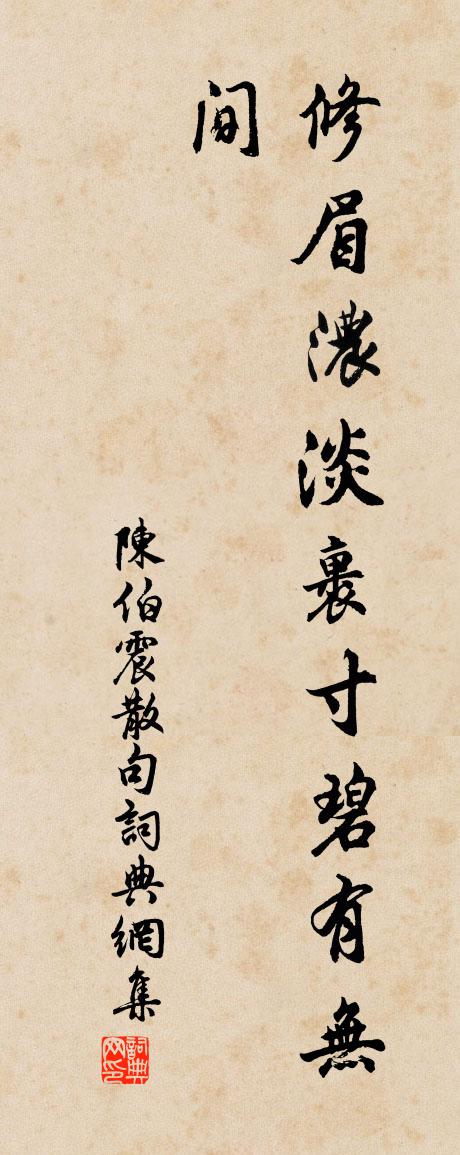 修眉濃淡裏寸碧有無
間
陳伯震散句詞典網集
詞典网印